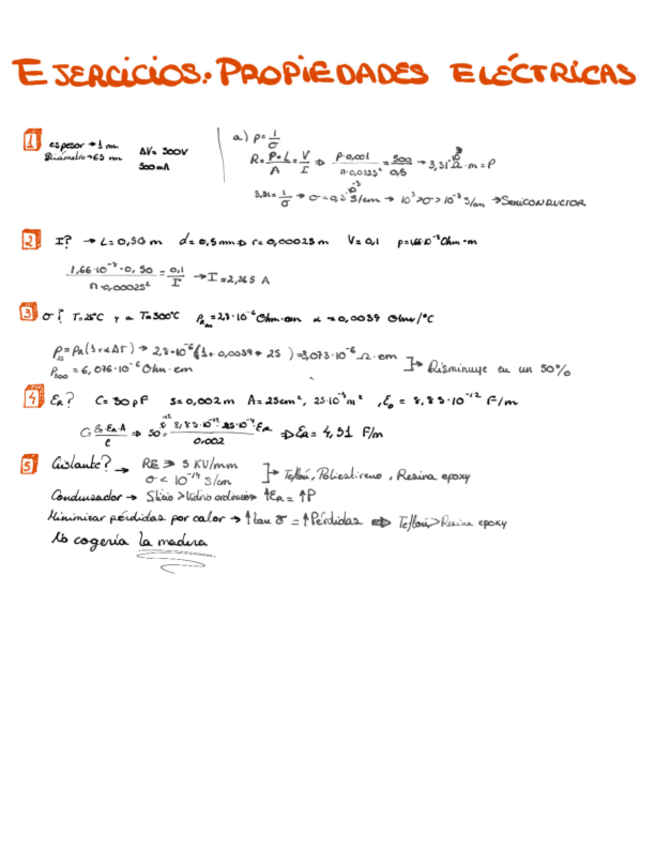 EJERCICIOS. PROPIEDADES ELÉCTRICAS
1 espesor → 1 mm
Diámetro → 65 mm
ΔV = 500V
500mA
a) ρ = 1/σ
R = ρ·L/A = V/I ⇒ ρ·0,001/π·0,0325² = 500/0,5 → 3,31·10³ Ω·m = ρ
3,31 = 1/σ → σ = 0,3·10⁻³ S/cm → 10³ > σ > 10⁻⁸ S/cm → SEMICONDUCTOR
2 I? → L = 0,50 m d = 0,5 mm ⇒ r = 0,00025 m V = 0,1 ρ = 1,66·10⁻⁸ Ohm·m
1,66·10⁻⁸·0,50/π·0,00025² = 0,1/I → I = 2,365 A
3 σ? T = 25°C y a T = 300°C = 2,8·10⁻⁶ Ohm·cm α = 0,0039 Ohm/°C
ρ₂₅ = ρR(1+αΔT) → 2,8·10⁻⁶(1+0,0039·25) = 3,073·10⁻⁶ Ω·cm
ρ₃₀₀ = 6,076·10⁻⁶ Ohm·cm
Disminuye en un 50%
4 εR? C = 50 pF s = 0,002 m A = 25cm², 25·10⁻⁴ m², ε₀ = 8,85·10⁻¹² F/m
C = ε₀·εR·A/ℓ ⇒ 50·10⁻¹² = 8,85·10⁻¹²·25·10⁻⁴·εR/0,002 ⇒ εR = 4,51 F/m
5 Aislante? → RE > 5 KV/mm
σ < 10⁻¹⁴ S/cm
→ Teflón, Poliestireno, Resina epoxy
Condensador → Sílicio > Vidrio ordinario ↑εR = ↑P
Minimizar pérdidas por calor → ↑tan σ = ↑Pérdidas ⇒ Teflón > Resina epoxy
No cogería la madera